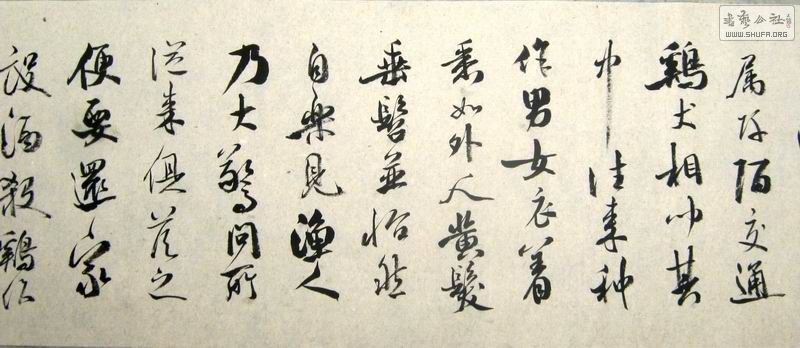 属阡陌交通
鷄犬相聞其
中往來種
作男女衣着
悉如外人黄髮
垂髫並怡然
自樂見漁人
乃大驚問所
從來俱答之
便要還家
設酒殺鷄作
書藝公社
WWW.SHUFA.ORG